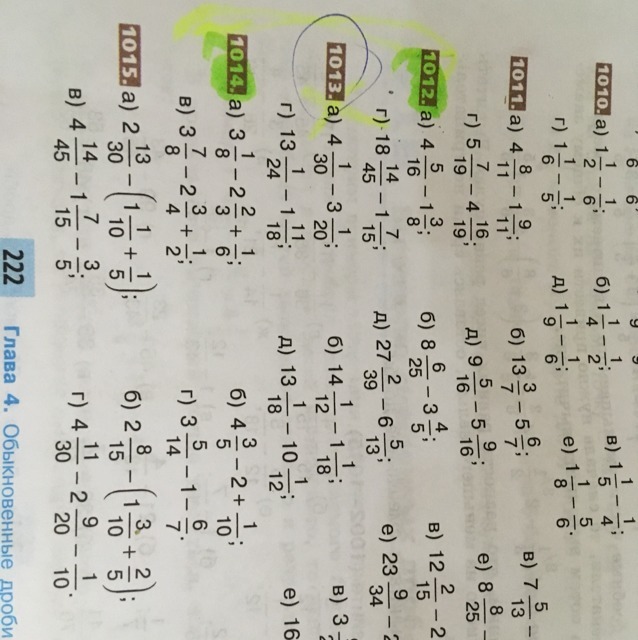 1010. а) 1 1/2 − 1/6; б) 1 1/4 − 1/2; в) 1 1/5 − 1/4;
г) 1 1/6 − 1/5; д) 1 1/9 − 1/6; е) 1 1/8 − 5/6.
1011. а) 4 8/11 − 1 9/11; б) 13 3/7 − 5 6/7; в) 7 5/13 −
г) 5 7/19 − 4 16/19; д) 9 5/16 − 5 9/16; е) 8 8/25
1012. а) 4 5/16 − 1 3/8; б) 8 6/25 − 3 4/5; в) 12 2/15 − 2
г) 18 14/45 − 1 7/15; д) 27 2/39 − 6 5/13; е) 23 9/34 −
1013. а) 4 1/30 − 3 1/20; б) 14 1/12 − 1 1/18; в) 3
г) 13 1/24 − 1 11/18; д) 13 1/18 − 10 1/12; е) 16
1014. а) 3 1/8 − 2 2/3 + 1/6; б) 4 3/5 − 2 + 1/10;
в) 3 7/8 − 2 3/4 + 1/2; г) 3 5/14 − 1 − 6/7.
1015. а) 2 13/30 − (1 1/10 + 1/5); б) 2 8/15 − (1 3/10 + 2/5);
в) 4 14/45 − 1 7/15 − 3/5; г) 4 11/30 − 2 9/20 − 1/10.
222 Глава 4. Обыкновенные дроби